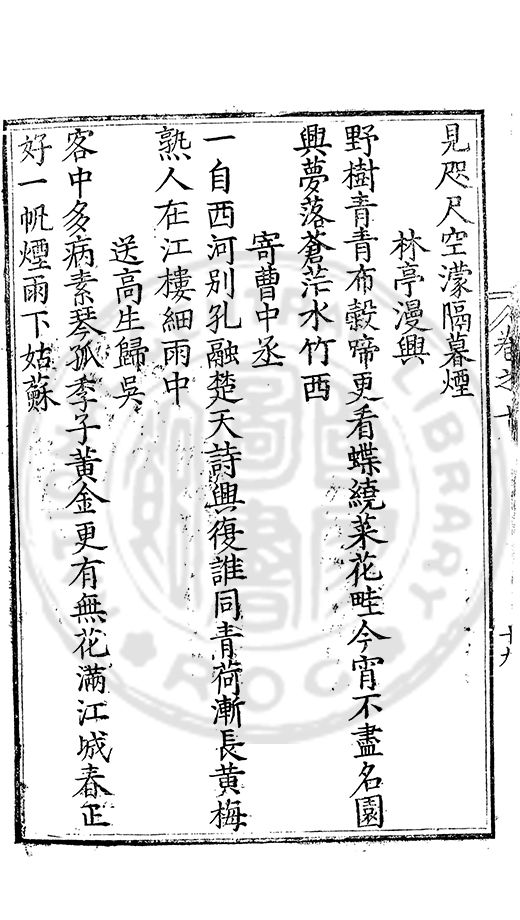 見咫尺空濛隔暮煙
林亭漫興
野樹青青布穀啼更看蝶繞菜花畦今宵不盡名園
興夢落蒼茫水竹西
寄曹中丞
一自西河別孔融楚天詩興復誰同青荷漸長黃梅
熟人在江樓細雨中
送高生歸吳
客中多病素琴孤季子黃金更有無花滿江城春正
好一帆煙雨下姑蘇